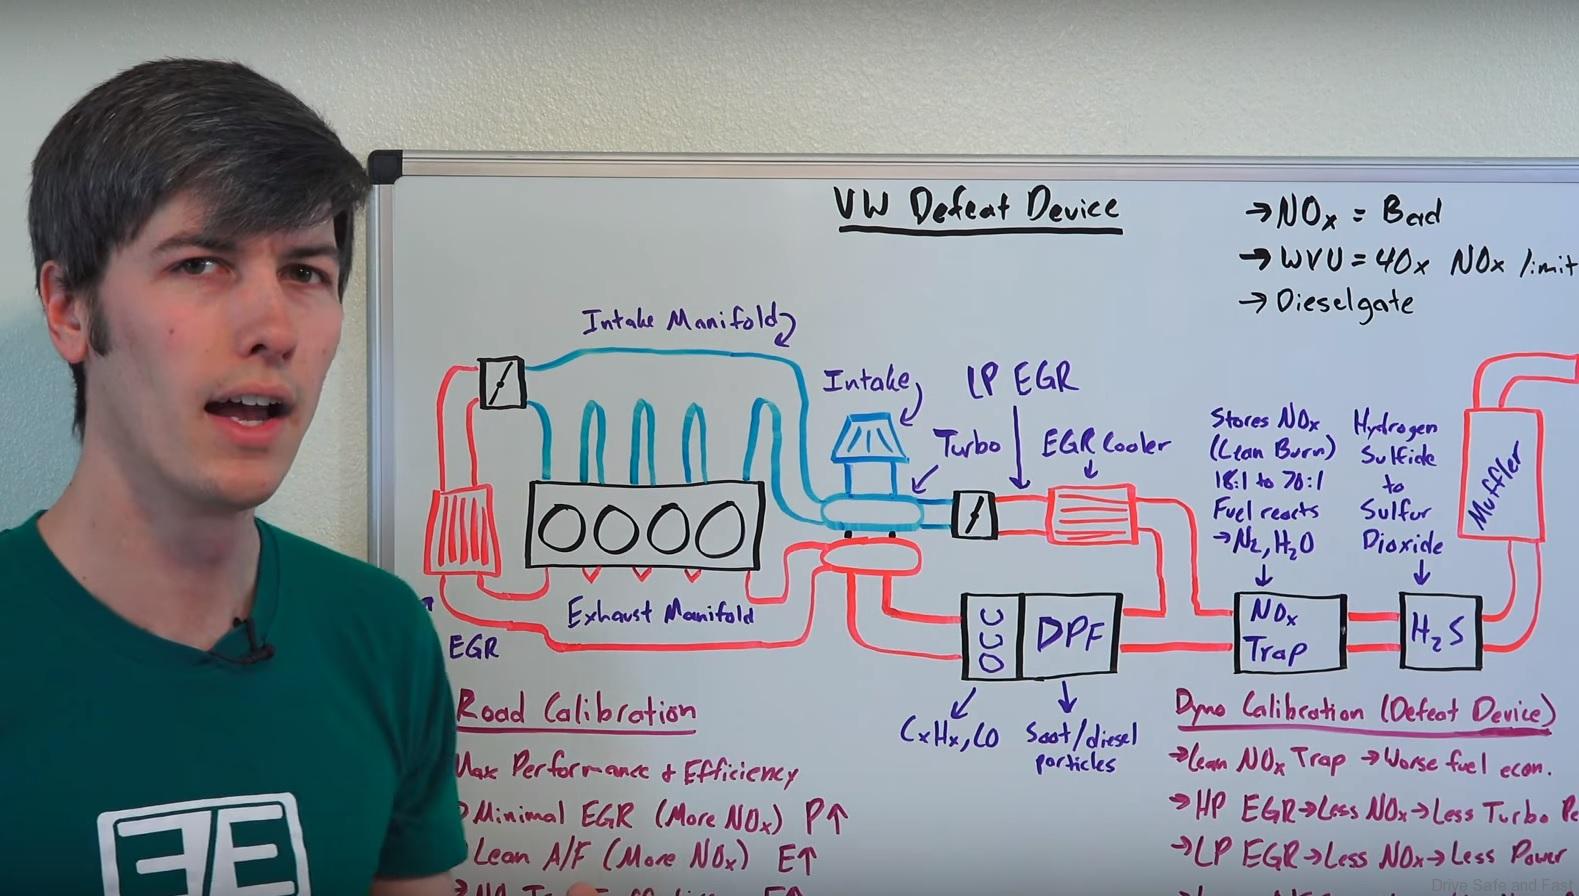 VW Defeat Device
→ NOx = Bad
→ WVU = 40x NOx limit
→ Dieselgate
Intake Manifold
Intake
LP EGR
Turbo
EGR Cooler
Stores NOx
(Lean Burn)
18:1 to 70:1
Fuel reacts
→ N2, H2O
Hydrogen
Sulfide
to
Sulfur
Dioxide
Muffler
Exhaust Manifold
EGR
DPF
NOx
Trap
H2S
CxHx, CO
Soot/diesel
particles
Road Calibration
Max Performance & Efficiency
Minimal EGR (More NOx) P↑
Lean A/F (More NOx) E↑
Dyno Calibration (Defeat Device)
→ Lean NOx Trap → Worse fuel econ.
→ HP EGR → Less NOx → Less Turbo
→ LP EGR → Less NOx → Less Power
EE
Drive Safe and Fast